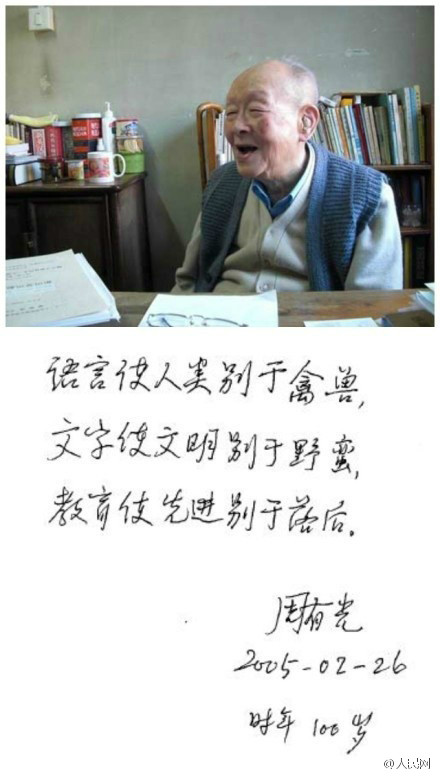 语言使人类别于禽兽，
文字使文明别于野蛮，
教育使先进别于落后。
周有光
2005-02-26
时年 100 岁
@人民网